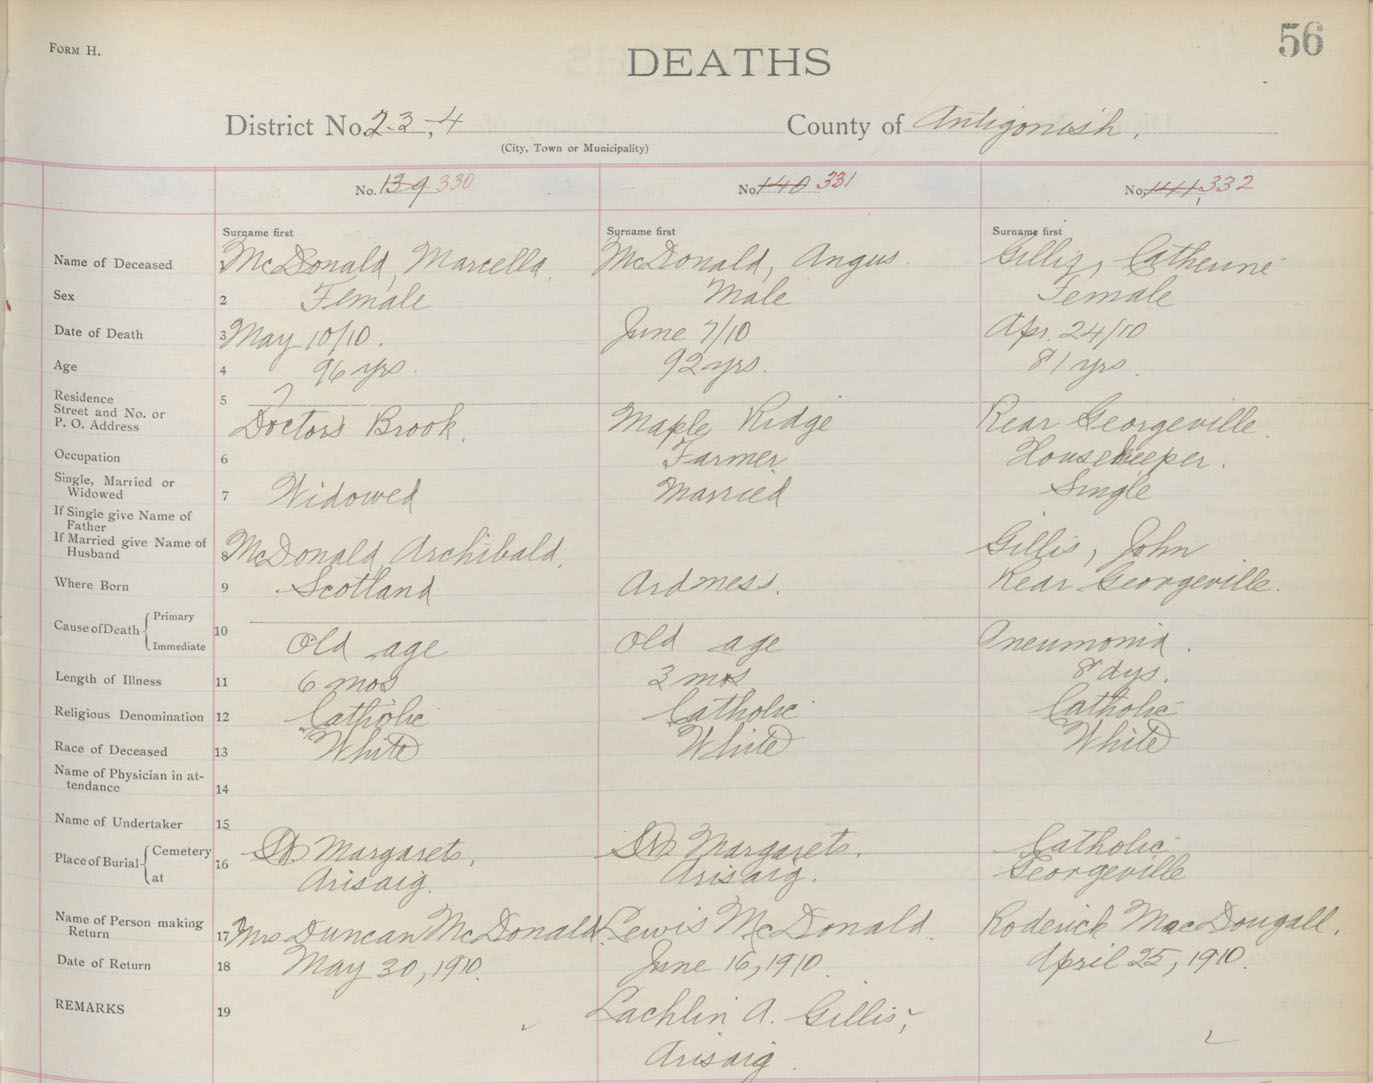 FORM H.
56
DEATHS
District No. 2-3, 4 County of Antigonish.
(City, Town or Municipality)
No. 139 330 No. 140 331 No. 141, 332
Surname first Surname first Surname first
Name of Deceased 1 McDonald, Marcella. McDonald, Angus. Gillis, Catherine
Sex 2 Female Male Female
Date of Death 3 May 10/10. June 7/10 Apr. 24/10
Age 4 96 yrs. 92 yrs. 81 yrs.
Residence 5
Street and No. or
P. O. Address Doctors Brook. Maple Ridge Rear Georgeville.
Occupation 6 Farmer Housekeeper.
Single, Married or
Widowed 7 Widowed Married Single
If Single give Name of
Father
If Married give Name of
Husband 8 McDonald, Archibald. Gillis, John
Where Born 9 Scotland Ardness. Rear Georgeville.
Cause of Death Primary
Immediate 10 Old age Old age Pneumonia.
Length of Illness 11 6 mos 3 mos 8 dys.
Religious Denomination 12 Catholic Catholic Catholic
Race of Deceased 13 White White White
Name of Physician in at-
tendance 14
Name of Undertaker 15
Place of Burial Cemetery 16 St Margarets, St. Margarets. Catholic
at Arisaig. Arisaig. Georgeville
Name of Person making
Return 17 Mrs Duncan McDonald. Lewis McDonald. Roderick MacDougall.
Date of Return 18 May 30, 1910. June 16, 1910. April 25, 1910.
REMARKS 19 Lachlin A. Gillis,
Arisaig